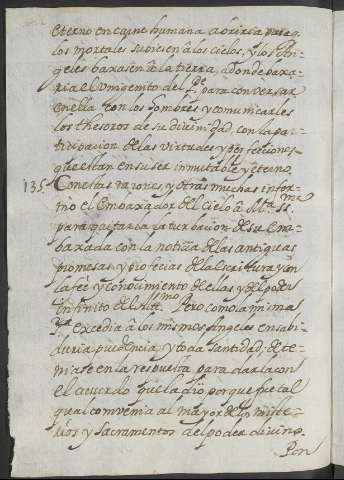 eterno en carne humana abriria para q.
los mortales subiesen à los cielos, y los An-
geles baxasen à la tierra, adonde baxa-
ria el Unigenito del P.e para conversar
en ella con los hombres y comunicarles
los thesoros de su divinidad, con la par-
ticipacion de las virtudes y perfecciones
que estan en su ser inmutable y eterno.
135 Con estas razones, y otras muchas infor-
mò el Embaxador del cielo à M.a SS.ma
para quitarla la turbacion de su em-
baxada con la noticia de las antiguas
promesas, y profecias de la Escritura y con
la fee y conocimiento de ellas, y del poder
infinito del Alt.mo Pero como la misma
S.ra excedia à los mismos Angeles en sabi-
duria prudencia, y toda santidad; dete-
niase en la respuesta para darla con
el acuerdo que la diò, porque fue tal
qual convenia al mayor de los miste-
rios y sacramentos del poder divino.
Pon